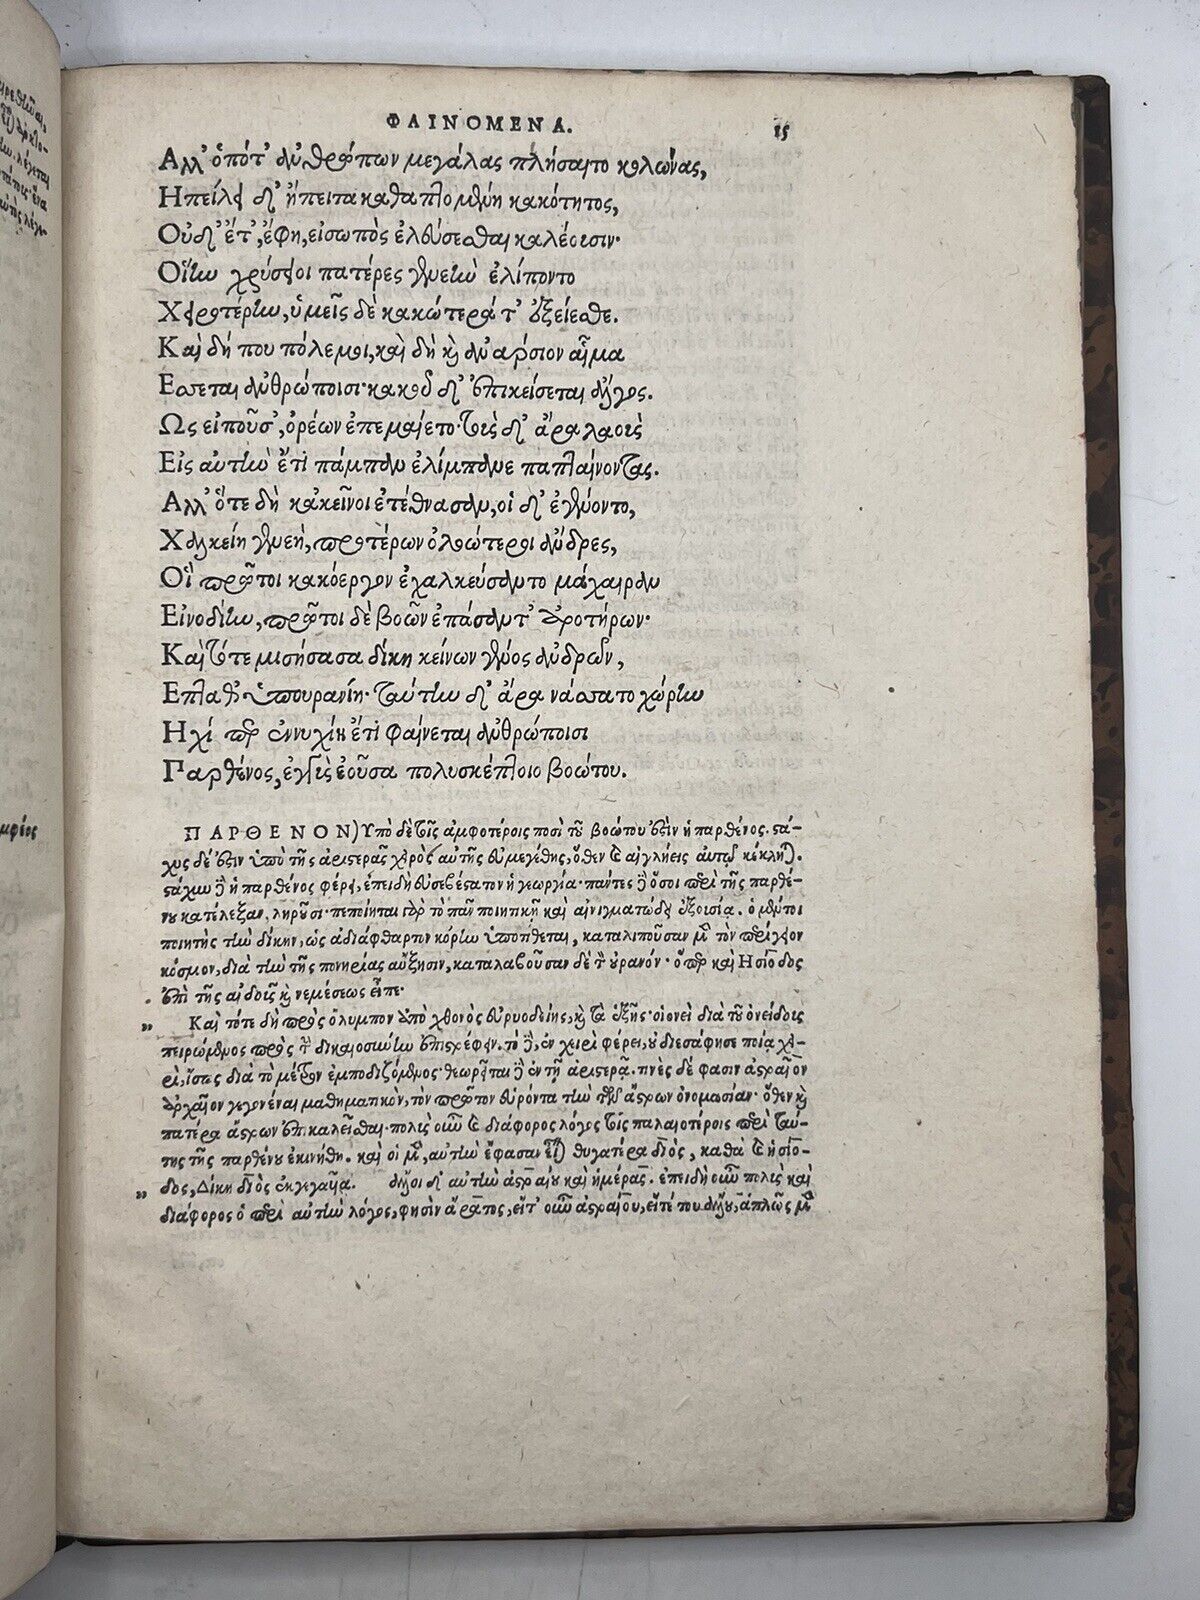 ΦΑΙΝΟΜΕΝΑ. 15
Αλλ' ὁπότ' ἀνθρώπων μεγάλας πλήσαιτο κολώνας,
Ηπείλει δ' ἤπειτα καθαπτομένη κακότητος,
Οὐδ' ἔτ', ἔφη, εἰσωπὸς ἐλεύσεσθαι καλέουσιν·
Οἵην χρύσειοι πατέρες γενεὴν ἐλίποντο
Χειροτέρην, ὑμεῖς δὲ κακώτερά τ' ἐξείεσθε.
Καὶ δή που πόλεμοι, καὶ δὴ καὶ ἀνάρσιον αἷμα
Εσσεται ἀνθρώποισι· κακοῦ δ' ἐπικείσεται ἄλγος.
Ως εἰποῦσ', ὀρέων ἐπεμαίετο· τοὺς δ' ἄρα λαοὺς
Εἰς αὐτὴν ἔτι πάμπαν ἐλίμπανε παπταίνοντας.
Αλλ' ὅτε δὴ κἀκεῖνοι ἐτέθνασαν, οἱ δ' ἐγένοντο,
Χαλκείη γενεὴ, προτέρων ὀλοώτεροι ἄνδρες,
Οἳ πρῶτοι κακόεργον ἐχαλκεύσαντο μάχαιραν
Εἰνοδίην, πρῶτοι δὲ βοῶν ἐπάσαντ' ἀροτήρων·
Καὶ τότε μισήσασα δίκη κείνων γένος ἀνδρῶν,
Επταθ' ὑπουρανίη· ταύτην δ' ἄρα νάσσατο χώρην
Ηχί περ ἐννυχίη ἔτι φαίνεται ἀνθρώποισι
Παρθένος, ἐγγὺς ἐοῦσα πολυσκέπτοιο βοώτου.
ΠΑΡΘΕΝΟΝ) Υπὸ δὲ τοῖς ἀμφοτέροις ποσὶ τοῦ βοώτου ἐστὶν ἡ παρθένος. στά-
χυς δέ ἐστιν ὑπὸ τῆς ἀριστερᾶς χειρὸς αὐτῆς εὐμεγέθης, ὅθεν καὶ αἰγλήεις αὐτῷ κέκληται.
στάχυν γὰρ ἡ παρθένος φέρει, ἐπειδὴ εὐσεβέστατον ἡ γεωργία· πάντες γὰρ ὅσοι περὶ τῆς παρθέ-
νου κατέλεξαν, ληροῦσι· πεποίηται γὰρ τὸ πᾶν ποιητικῇ καὶ αἰνιγματώδει ἐξουσίᾳ. ὁ μέντοι
ποιητὴς τὴν δίκην, ὡς ἀδιάφθαρτον κόρην ὑποτίθεται, καταλιποῦσαν μὲν τὸν περίγειον
κόσμον, διὰ τὴν τῆς πονηρίας αὔξησιν, καταλαβοῦσαν δὲ τὸν οὐρανόν· ὅπερ καὶ Ησίοδος
ἐπὶ τῆς αἰδοῦς καὶ νεμέσεως εἶπε·
" Καὶ τότε δὴ πρὸς ὄλυμπον ἀπὸ χθονὸς εὐρυοδείης, καὶ τὰ ἑξῆς· οἱονεὶ διὰ τοῦ ὀνείδους
πειρώμενος πρὸς τὴν δικαιοσύνην ἐπιστρέφειν. τὸ γὰρ, ἐν χειρὶ φέρει, οὐ διεσάφησε ποίᾳ χει-
ρὶ, ἴσως διὰ τὸ μέτρον ἐμποδιζόμενος· θεωρεῖται γὰρ ἐν τῇ ἀριστερᾷ. τινὲς δέ φασιν ἀστραῖον
ἀρχαῖον γεγονέναι μαθηματικὸν, τὸν πρῶτον εὑρόντα τὴν τῶν ἄστρων ὀνομασίαν· ὅθεν καὶ
πατέρα ἄστρων ἐπικαλεῖσθαι· πολὺς οὖν καὶ διάφορος λόγος τοῖς παλαιοτέροις περὶ ταύ-
της τῆς παρθένου ἐκινήθη. καὶ οἱ μὲν, αὐτὴν ἔφασαν εἶναι θυγατέρα διὸς, καθὰ καὶ ἡσίο-
" δος, Δίκη διὸς ἐκγεγαῦα. ἄλλοι δ' αὐτὴν ἀστραίου καὶ ἡμέρας. ἐπειδὴ οὖν πολὺς καὶ
διάφορος ὁ περὶ αὐτὴν λόγος, φησὶν ἄρατος, εἴτ' οὖν ἀστραίου, εἴτέ του ἄλλου, ἁπλῶς μὲν